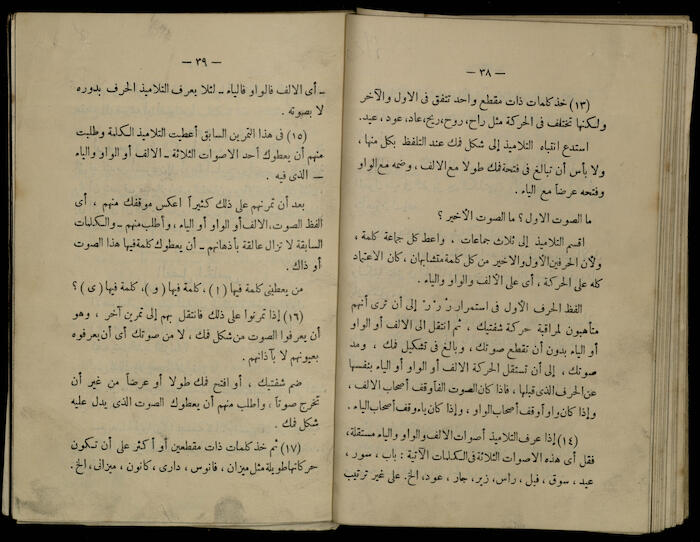 — ٣٨ —
(١٣) خذ كلمات ذات مقطع واحد تتفق فى الاول والآخر
ولكنها تختلف فى الحركة مثل راح، روح، ريح، عاد، عود، عيد.
استدع انتباه التلاميذ إلى شكل فمك عند التلفظ بكل منها،
ولا بأس أن تبالغ فى فتحة فمك طولا مع الالف، وضمه مع الواو
وفتحه عرضاً مع الياء.
ما الصوت الاول؟ ما الصوت الأخير؟
اقسم التلاميذ إلى ثلاث جماعات، واعط كل جماعة كلمة،
ولأن الحرفين الأول والاخير من كل كلمة متشابهان، كان الاعتماد
كله على الحركة، أى على الألف والواو والياء.
الفظ الحرف الأول فى استمرار رْ رْ رْ إلى أن ترى أنهم
متأهبون لمراقبة حركة شفتيك، ثم انتقل الى الالف أو الواو
أو الياء بدون أن تقطع صوتك، وبالغ فى تشكيل فمك، ومد
صوتك، إلى أن تستقل الحركة الالف أو الواو أو الياء بنفسها
عن الحرف الذى قبلها، فاذا كان الصوت الفاً وقف أصحاب الالف،
وإذا كان واواً وقف أصحاب الواو، وإذا كان ياء وقف أصحاب الياء.
(١٤) إذا عرف التلاميذ أصوات الالف والواو والياء مستقلة،
فقل أى هذه الاصوات الثلاثة فى الكلمات الآتية: باب، سور،
عيد، سوق، فيل، راس، زير، جار، عود، الخ. على غير ترتيب
— ٣٩ —
ـ أى الالف فالواو فالياء ـ لئلا يعرف التلاميذ الحرف بدوره
لا بصوته.
(١٥) فى هذا التمرين السابق أعطيت التلاميذ الكلمة وطلبت
منهم أن يعطوك أحد الاصوات الثلاثة ـ الالف أو الواو والياء
ـ الذى فيه.
بعد أن تمرنهم على ذلك كثيراً اعكس موقفك منهم، أى
الفظ الصوت، الالف أو الواو أو الياء، وأطلب منهم ـ والكلمات
السابقة لا تزال عالقة بأذهانهم ـ أن يعطوك كلمة فيها هذا الصوت
أو ذاك.
من يعطينى كلمة فيها (ا)، كلمة فيها (و)، كلمة فيها (ى)؟
(١٦) إذا تمرنوا على ذلك فانتقل بهم إلى تمرين آخر، وهو
أن يعرفوا الصوت من شكل فمك، لا من صوتك أى أن يعرفوه
بعيونهم لا بآذانهم.
ضم شفتيك، أو افتح فمك طولا أو عرضاً من غير أن
تخرج صوتاً، واطلب منهم أن يعطوك الصوت الذى يدل عليه
شكل فمك.
(١٧) ثم خذ كلمات ذات مقطعين أو أكثر على أن تكون
حركاتها طويلة مثل ميزان، فانوس، دارى، كانون، ميزانى، الخ.